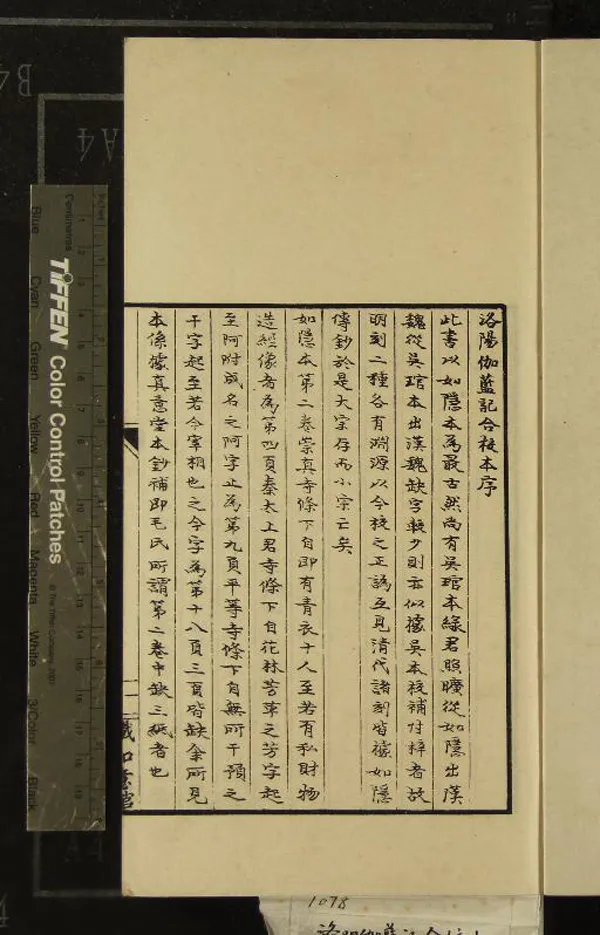 洛陽伽藍記合校本序
此書以如隱本為最古然尚有吳琯本綠君照曠從如隱出漢
魏從吳琯本出漢魏缺字較少則亦似據吳本校補付梓者故
明刻二種各有淵源以今校之正譌互見清代諸刻皆據如隱
傳鈔於是大宗存而小宗亡矣
如隱本第二卷崇真寺條下自即有青衣十人至若有私財物
造經像者為第四頁秦太上君寺條下自花林芳草之芳字起
至阿附成名之阿字止為第九頁平等寺條下自無所干預之
干字起至若今宰相也之今字為第十八頁三頁皆缺余所見
本係據真意堂本鈔補即毛氏所謂第二卷中缺三紙者也
TIFFEN Color Control Patches
© The Tiffen Company, 2007
Centimetres
Inches
Blue
Cyan
Green
Yellow
Red
Magenta
White
3/Color
Black
B4
A4
A4
1078